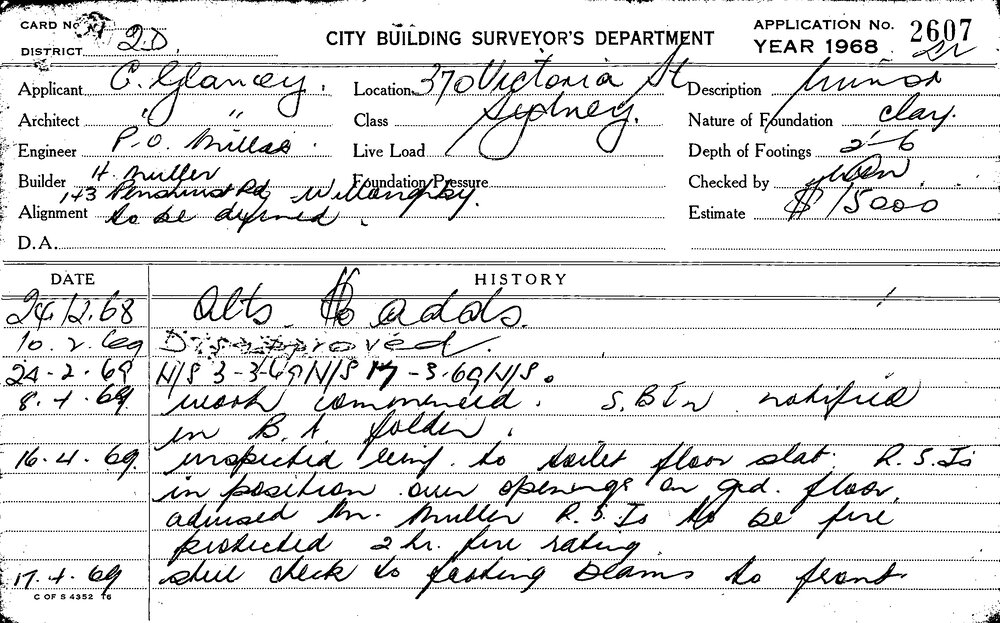 CARD No.
DISTRICT 2D.
CITY BUILDING SURVEYOR'S DEPARTMENT
APPLICATION No. 2607
YEAR 1968
Applicant C. Glancey.
Location 370 Victoria St
Sydney.
Description minor
Architect " "
Class
Nature of Foundation clay.
Engineer P.O. Miller
Live Load
Depth of Footings 2'-6
Builder H. Muller
143 Penshurst Rd Willoughby.
Foundation Pressure
Checked by
Alignment to be defined.
Estimate $15000
D.A.
DATE HISTORY
24.12.68 Alts. & adds.
10.2.69 Disapproved.
24-2.69 N/S 3-3-69 N/S 17-3.69 N/S.
8.4.69 work commenced. S.B.In notified
in B.A. folder.
16.4.69. inspected reinf. to toilet floor slab. R.S.Js
in position over openings on grd. floor,
advised Mr. Muller R.S.Js to be fire
protected 2 hr. fire rating.
17.4.69 steel check to footing beams to front.
C OF S 4352 16